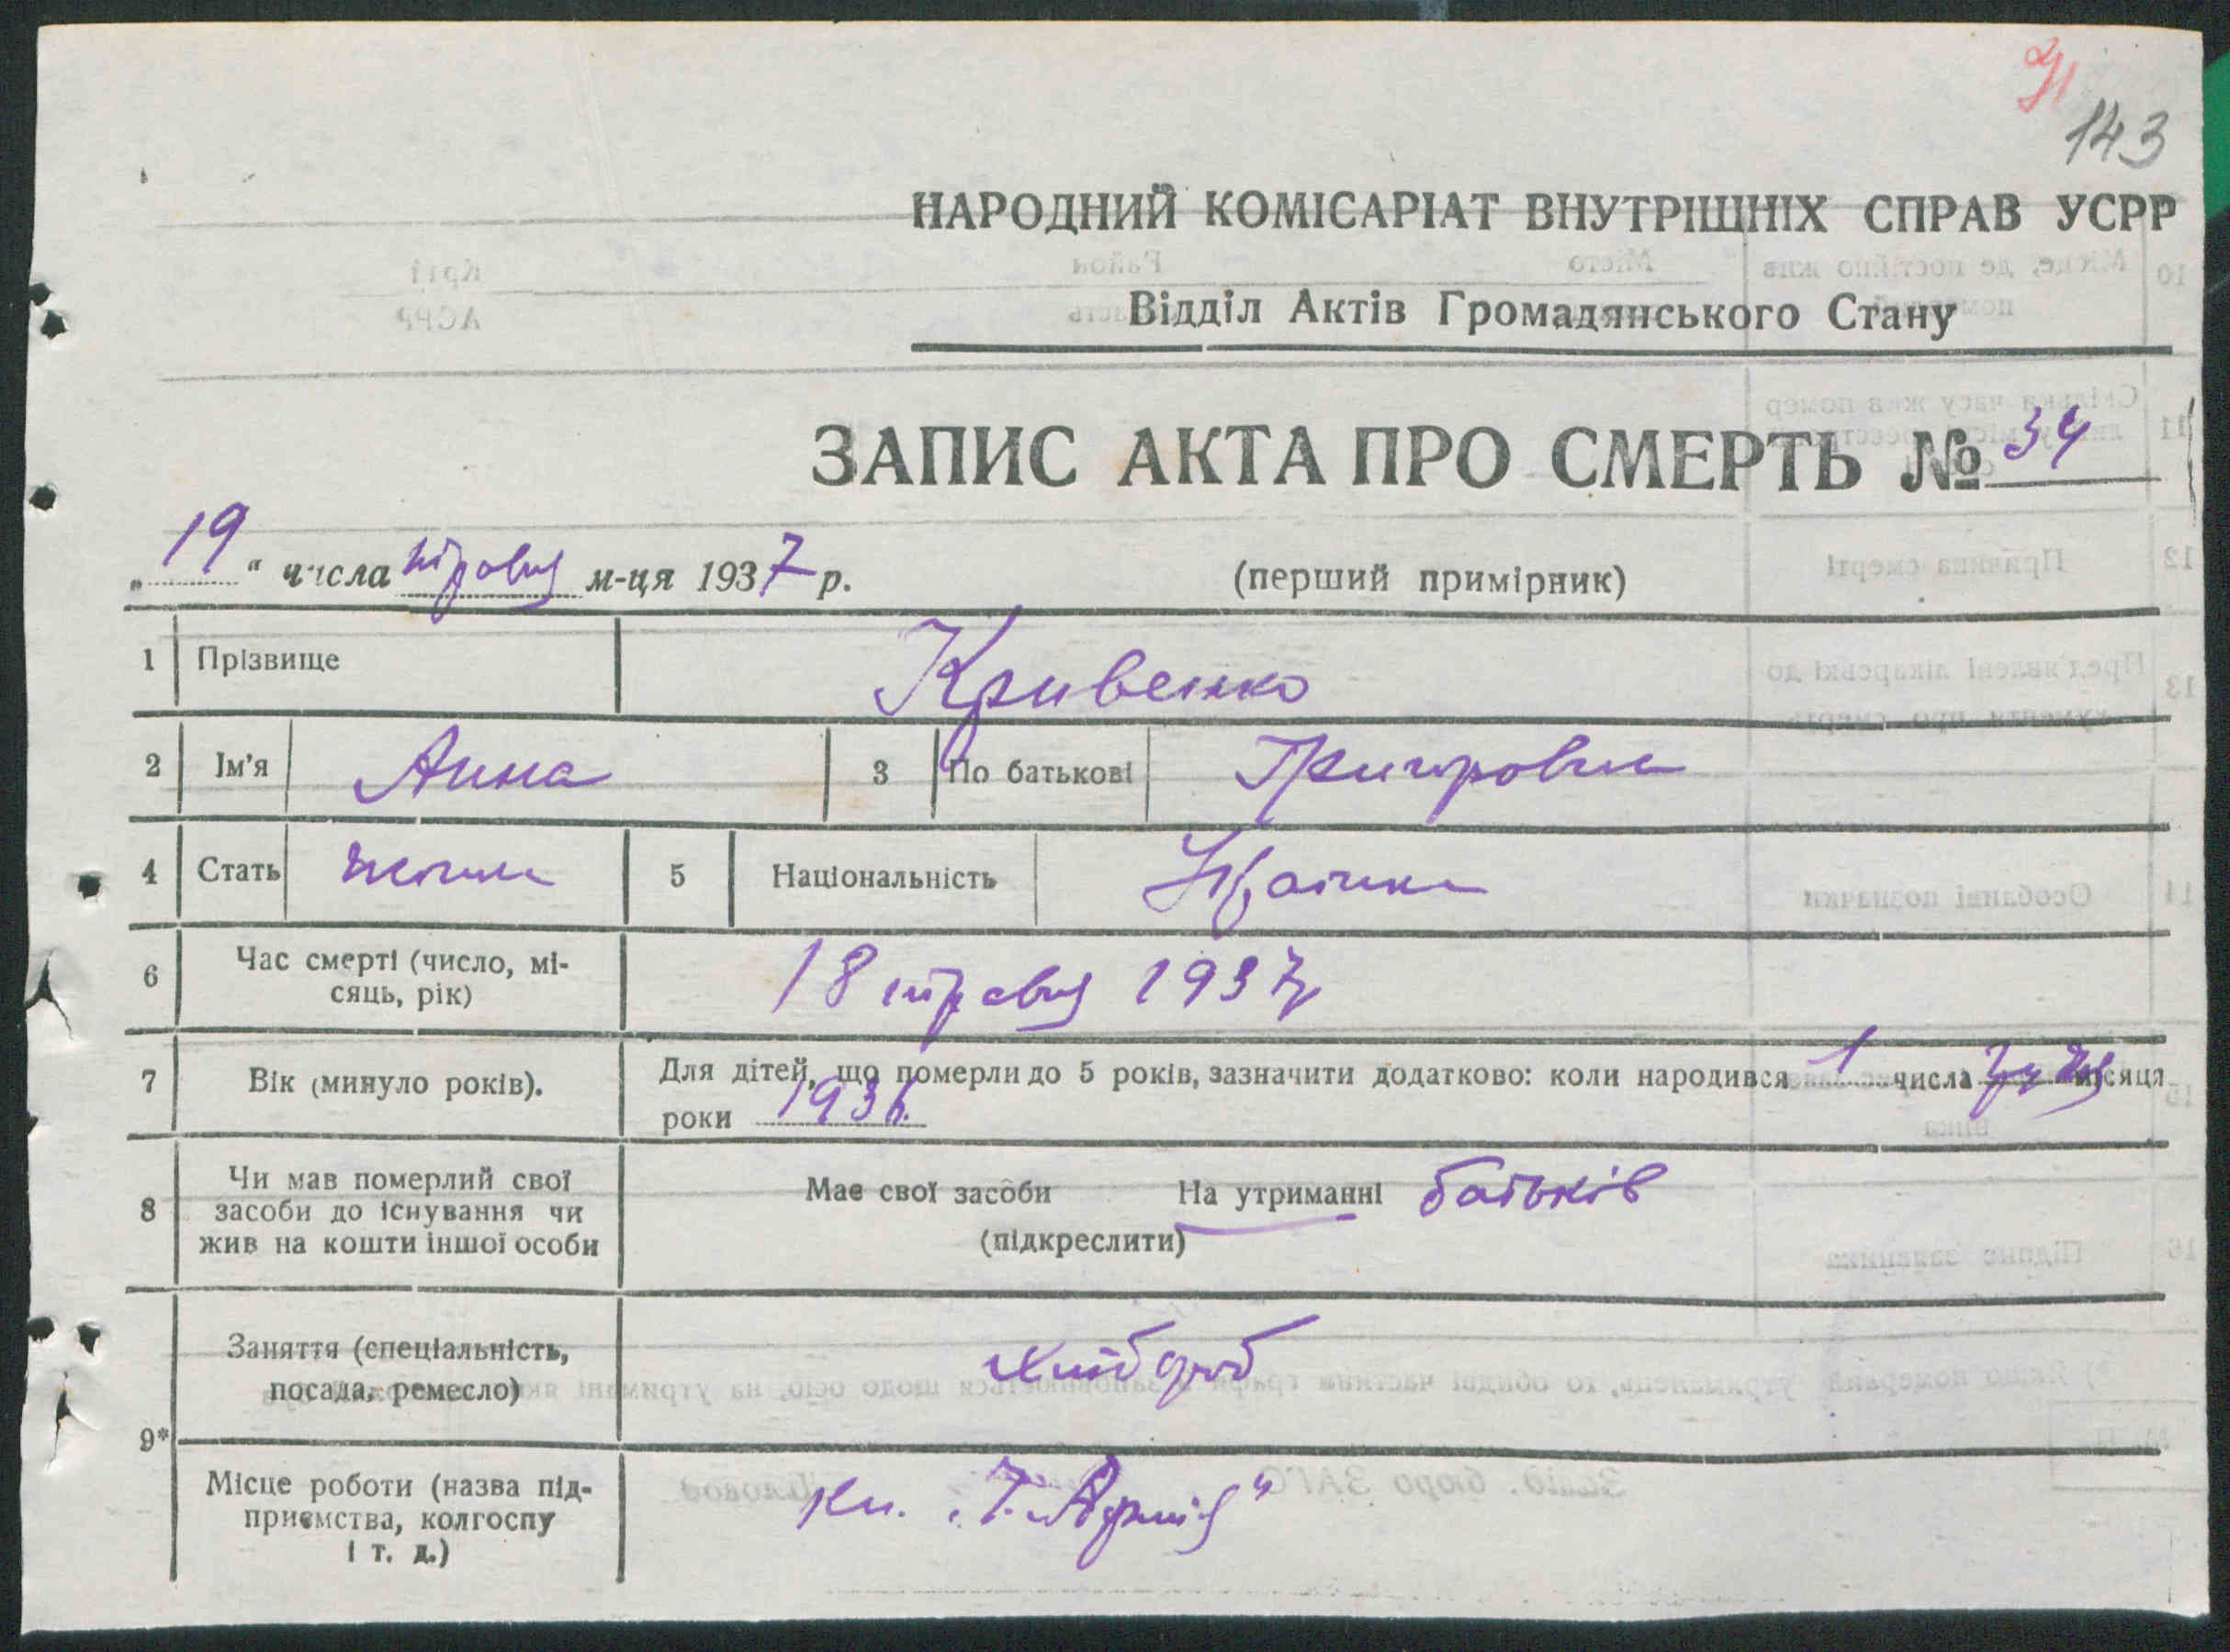 143
НАРОДНИЙ КОМІСАРІАТ ВНУТРІШНІХ СПРАВ УСРР
Відділ Актів Громадянського Стану
ЗАПИС АКТА ПРО СМЕРТЬ № 34
„19“ числа травня м-ця 1937 р. (перший примірник)
1 Прізвище Кривенко
2 Ім'я Анна 3 По батькові Григоровна
4 Стать жіноча 5 Національність Українка
6 Час смерті (число, мі-
сяць, рік) 18 травня 1937
7 Вік (минуло років). Для дітей, що померли до 5 років, зазначити додатково: коли народився 1 числа грудня місяця
роки 1936
8 Чи мав померлий свої
засоби до існування чи
жив на кошти іншої особи
Має свої засоби На утриманні батьків
(підкреслити)
9* Заняття (спеціальність,
посада, ремесло) хлібороб
Місце роботи (назва під-
приємства, колгоспу
і т. д.) Кл. „Ч. Армія“